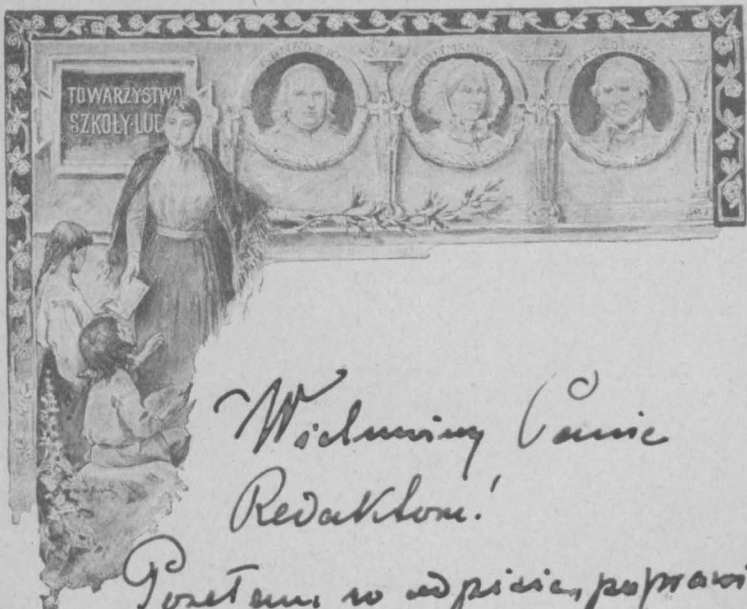 TOWARZYSTWO
SZKOŁY·LUD
Wielmożny Panie
Redaktorze!
Posełam w odpisie, poprawi